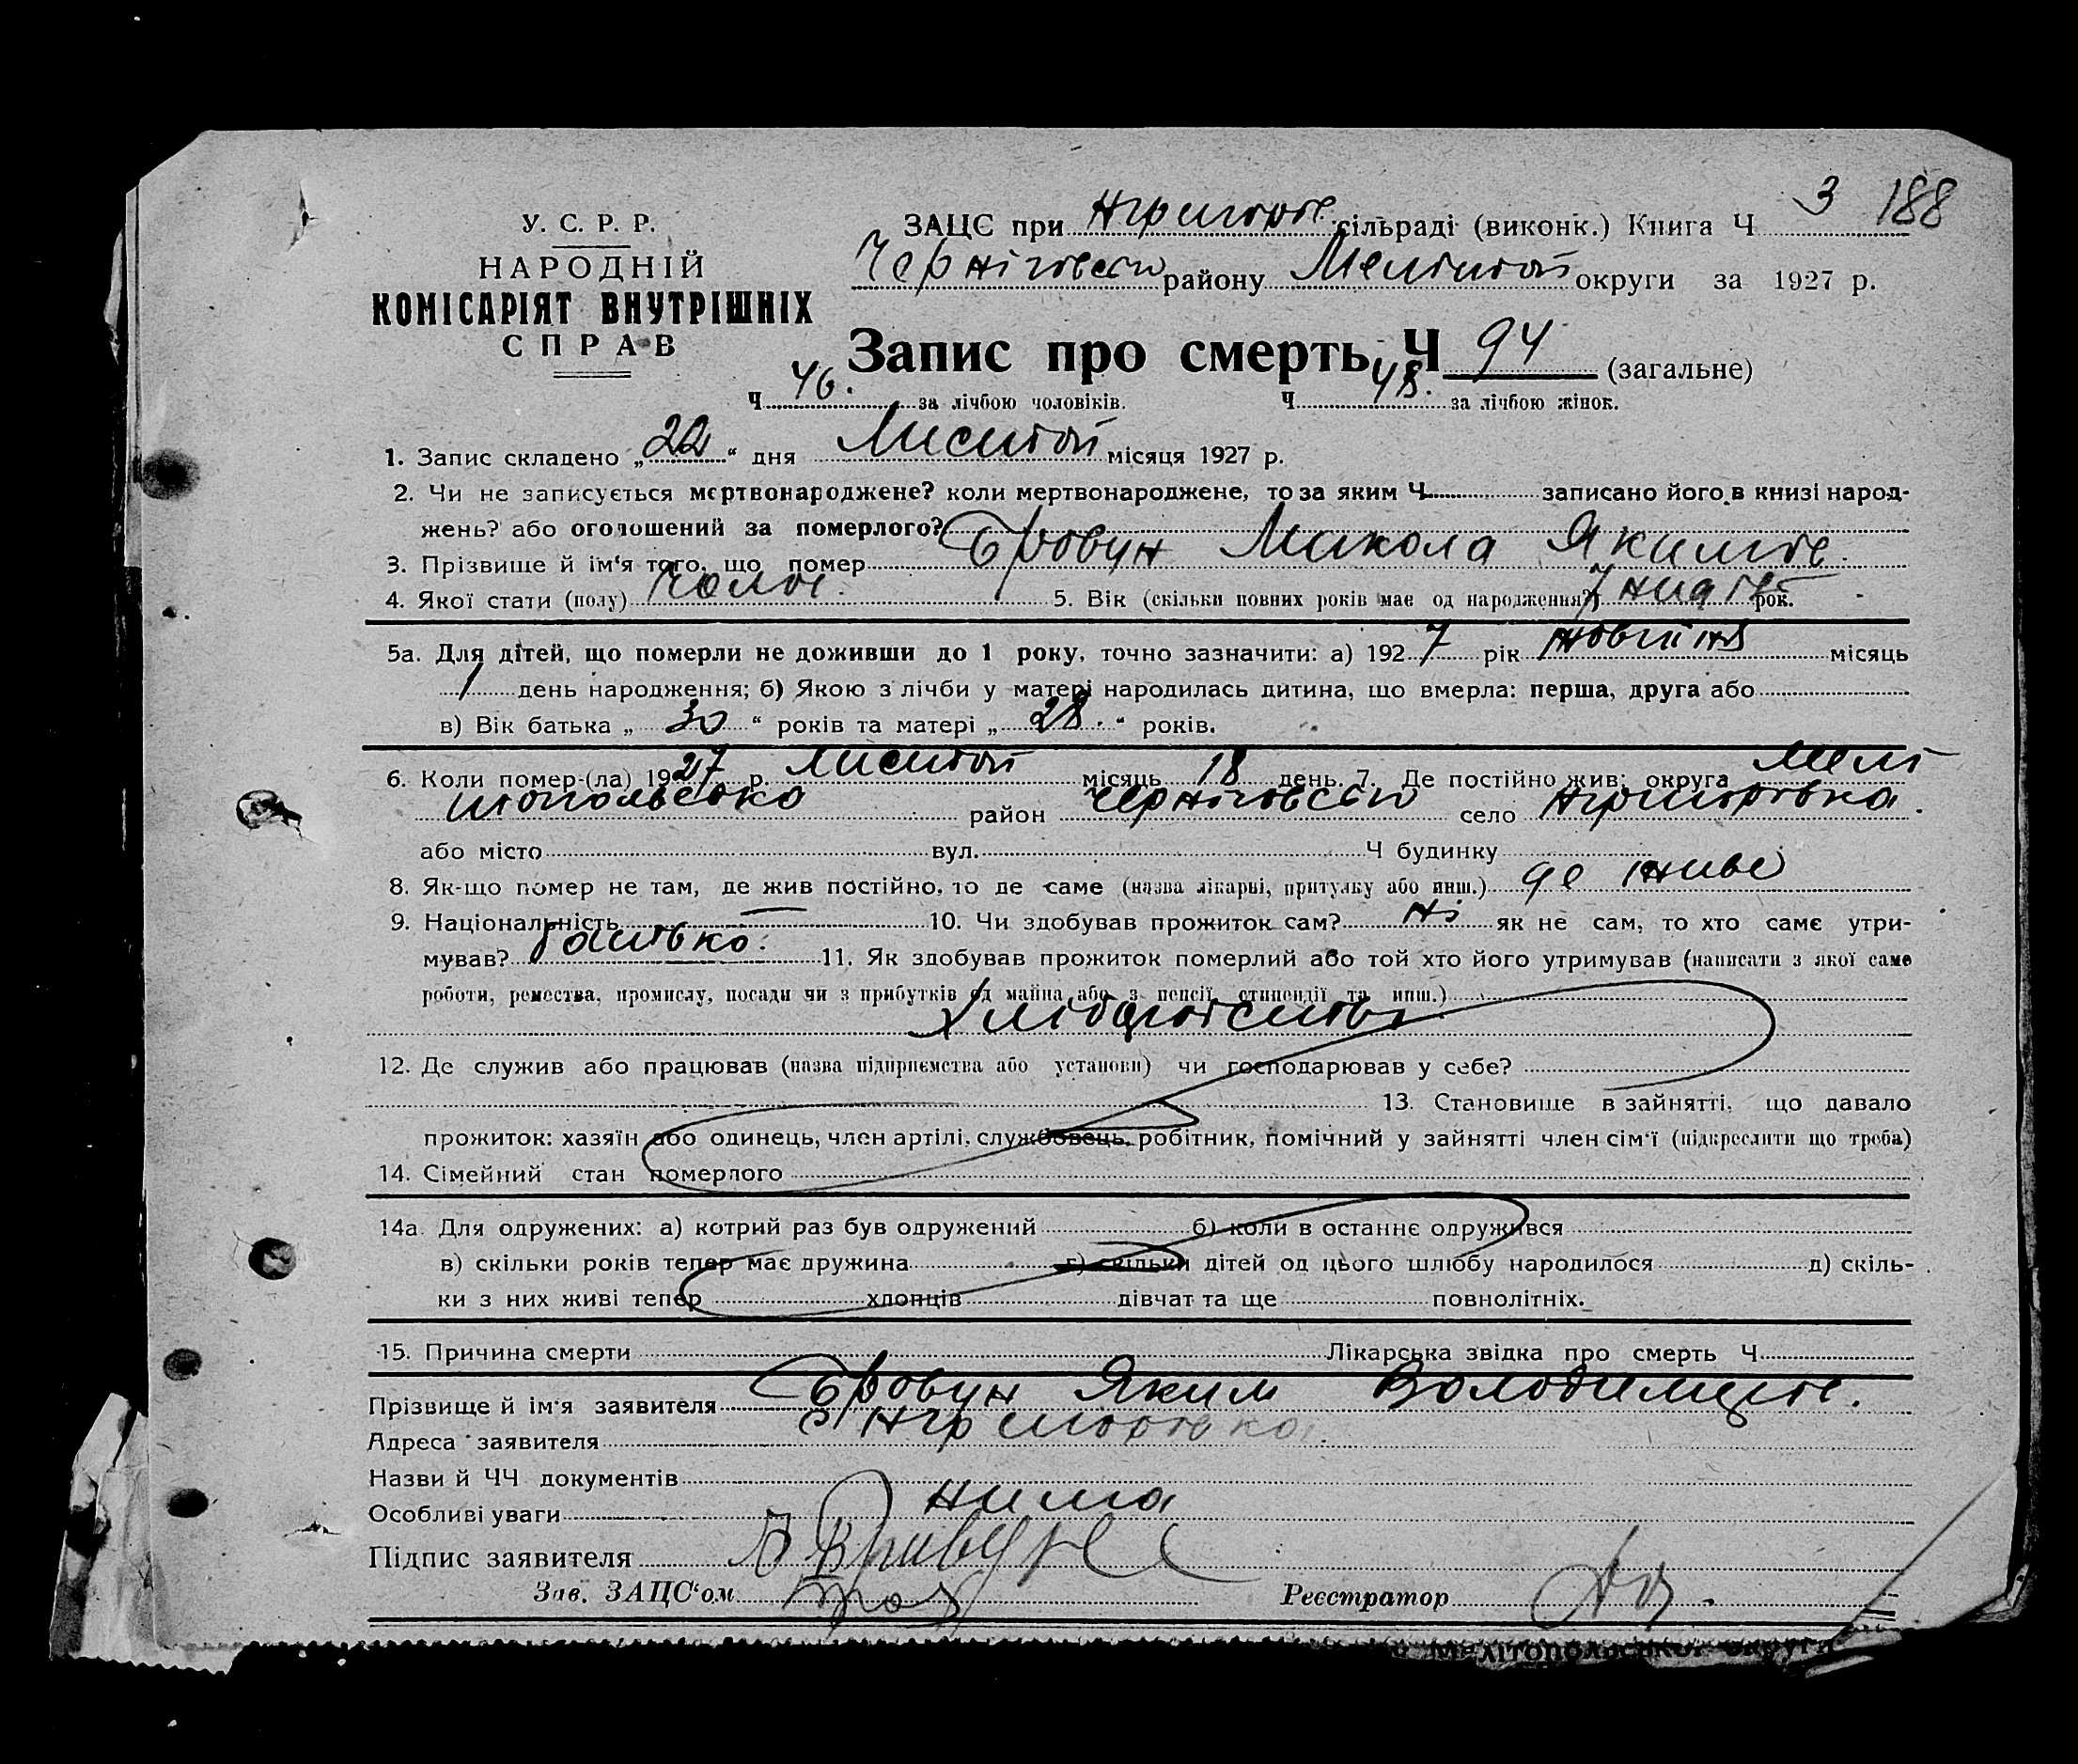 3 188
У. С. Р. Р.
ЗАЦС при сільраді (виконк.) Книга Ч
НАРОДНІЙ
Чернігівсько району Мелитоп округи за 1927 р.
КОМІСАРІЯТ ВНУТРІШНІХ
СПРАВ
Запис про смерть Ч 94 (загальне)
Ч 46. за лічбою чоловіків. Ч 48. за лічбою жінок.
1. Запис складено „22“ дня Листоп місяця 1927 р.
2. Чи не записується мертвонароджене? коли мертвонароджене, то за яким Ч записано його в книзі народ-
жень? або оголошений за померлого?
3. Прізвище й ім‘я того, що помер Бровун Микола Якимов.
4. Якої стати (полу) Чолов. 5. Вік (скільки повних років має од народження?) рок.
5а. Для дітей, що померли не доживши до 1 року, точно зазначити: а) 1927 рік жовтня місяць
1 день народження; б) Якою з лічби у матері народилась дитина, що вмерла: перша, друга або
в) Вік батька „30“ років та матері „28.“ років.
6. Коли помер-(ла) 1927 р. Листоп місяць 18 день. 7. Де постійно жив: округа Мелі
топольсько район Чернігівсько село
або місто вул. Ч будинку
8. Як-що помер не там, де жив постійно, то де саме (назва лікарні, притулку або инш.) де живе
9. Національність — 10. Чи здобував прожиток сам? Ні як не сам, то хто саме утри-
мував? батько. 11. Як здобував прожиток померлий або той хто його утримував (написати з якої саме
роботи, ремества, промислу, посади чи з прибутків од майна, або з пенсії, стипендії та инш.)
12. Де служив або працював (назва підприємства або установи) чи господарював у себе?
13. Становище в зайнятті, що давало
прожиток: хазяїн або одинець, член артілі, службовець, робітник, помічний у зайнятті член сім‘ї (підкреслити що треба)
14. Сімейний стан померлого
14а. Для одружених: а) котрий раз був одружений б) коли в останнє одружився
в) скільки років тепер має дружина г) скільки дітей од цього шлюбу народилося д) скіль-
ки з них живі тепер хлопців дівчат та ще повнолітніх.
15. Причина смерти Лікарська звідка про смерть Ч
Прізвище й ім‘я заявителя Бровун Яким Володимиров.
Адреса заявителя
Назви й ЧЧ документів
Особливі уваги нима
Підпис заявителя
Зав. ЗАЦС‘ом Реєстратор
Мелітопольської округи